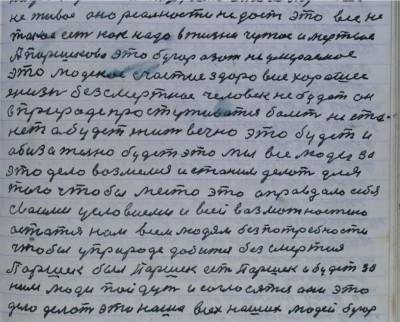 не живое оно реальности не дост это все не
такое ест как надо в жизни чужое и мертвое
А Паршеково это бугор азот не умераемое
это людское счастие здоровие хорошее
жизн безсмертное человек не будет он
в природе простуживатся болит не ста-
нет а будет жит вечно это будет и
обизатено будет это мы все люды за
это дело возмемся и станим делат для
того чтобы место это оправдало себя
своими условиеми и всей возможностию
остатся нам всем людям без потребности
чтобы у природе добится безсмертия
Паршек был Паршек ест Паршек и будет за
ним люди пойдут и согласятся они это
дело делат это наша всех наших людей бугор